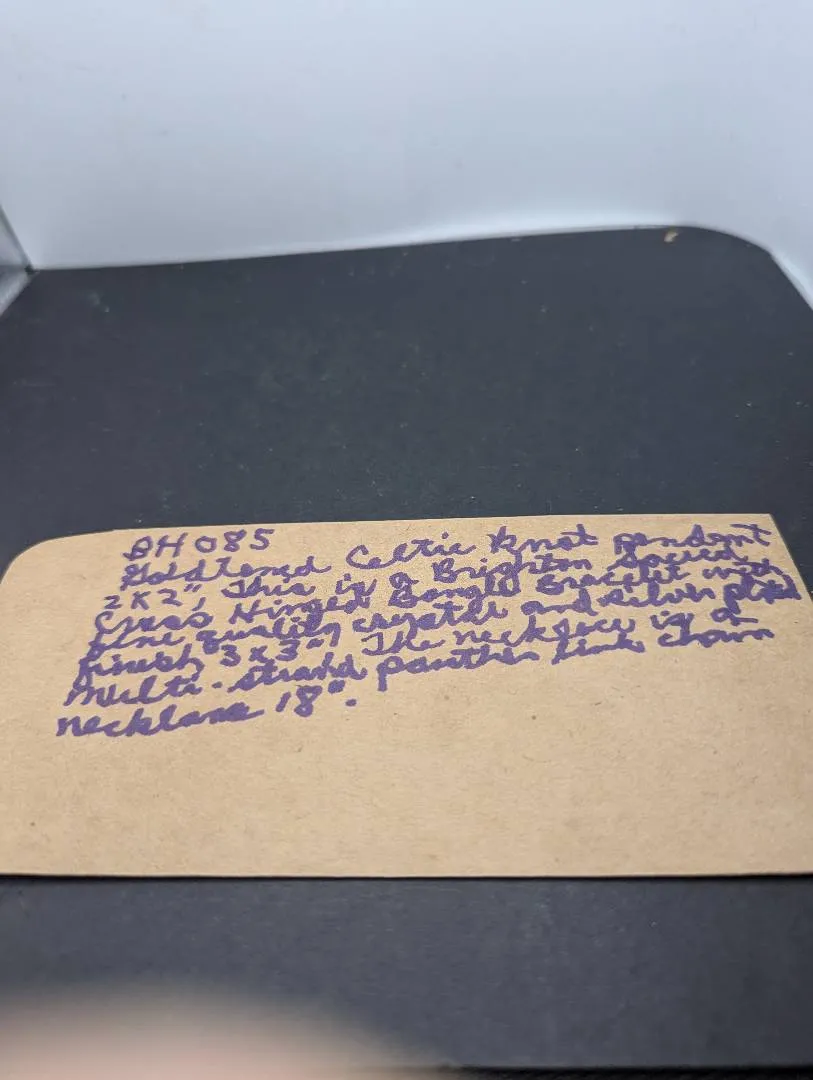 BH085
Goldtoned Celtic Knot pendant
2x2", This is a Brighton Speced
Cross Hinged Bangle Bracelet with
fine quality crystal and silver plated
finish 3x3", The necklace is a
Multi-strand panther link chain
necklane 18".